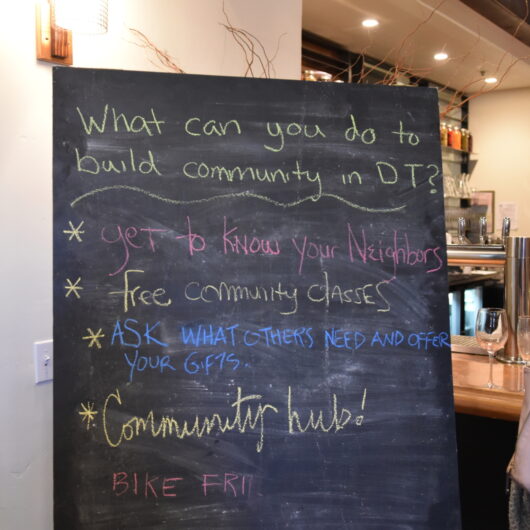 What can you do to
build community in DT?
* yet to know your Neighbors
* free community classes
* ASK WHAT OTHERS NEED AND OFFER
YOUR GIFTS.
* Community hub!
BIKE FRI